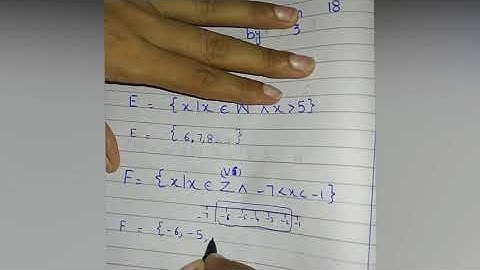 18
by 3
E = {x|x ∈ W ∧ x>5}
E = {6,7,8...}
F = {x|x ∈ Z ∧ -7<x<-1}
-7 -6 -5 -4 -3 -2 -1
F = {-6, -5,